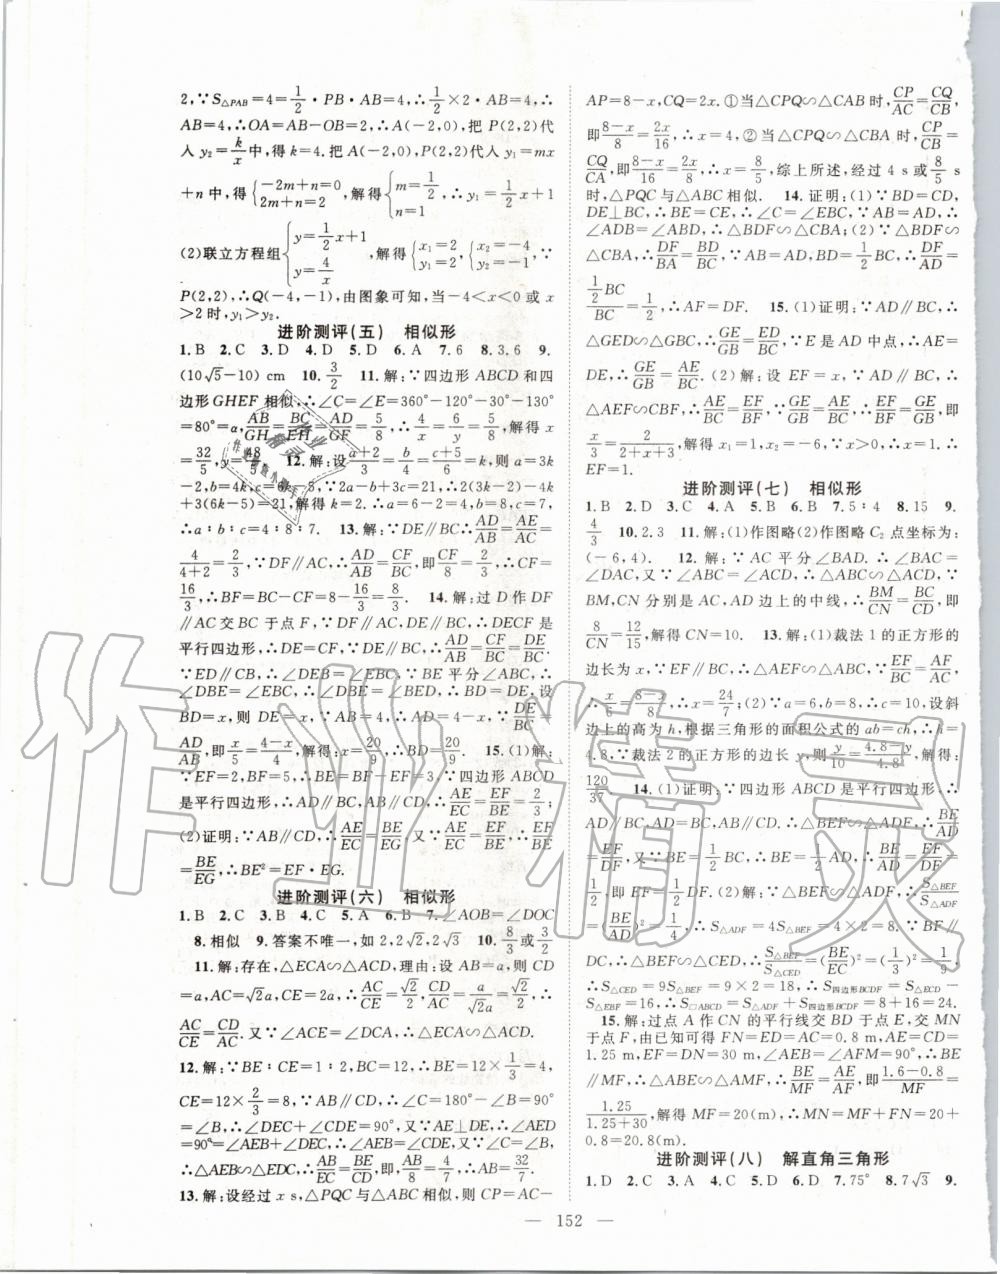 2,∵S△PAB=4=1/2·PB·AB=4,∴1/2×2·AB=4,∴
AB=4,∴OA=AB-OB=2,∴A(-2,0),把P(2,2)代
入y₂=k/x中,得k=4.把A(-2,0),P(2,2)代入y₁=mx
+n中,得{-2m+n=0 2m+n=2,解得{m=1/2 n=1,∴y₁=1/2x+1
(2)联立方程组{y=1/2x+1 y=4/x,解得{x₁=2 y₁=2,{x₂=-4, y₂=-1,∵
P(2,2),∴Q(-4,-1),由图象可知,当-4<x<0或x
>2时,y₁>y₂.
进阶测评(五) 相似形
1.B 2.C 3.D 4.D 5.D 6.A 7.6 8.3.6 9.
(10√5-10) cm 10.3/2 11.解:∵四边形ABCD和四
边形GHEF相似,∴∠C=∠E=360°-120°-30°-130°
=80°=α,AB/GH=BC/EH=AD/GF=5/8,∴5/x=4/y=5/8,解得x=
32/5,y=48/5 12.解:设a+2/3=b/4=c+5/6=k,则a=3k
-2,b=4k,c=6k-5,∵2a-b+3c=21,∴2(3k-2)-4k
+3(6k-5)=21,解得k=2.∴a=4,b=8,c=7,
∴a∶b∶c=4∶8∶7. 13.解:∵DE∥BC∴AD/AB=AE/AC=
4/4+2=2/3,∵DF∥AC,∴AD/AB=CF/BC,即2/3=CF/8,∴CF=
16/3,∴BF=BC-CF=8-16/3=8/3. 14.解:过D作DF
∥AC交BC于点F,∵DF∥AC,DE∥BC,∴DECF是
平行四边形,∴AD/AB=CF/BC=DE/BC.
∵ED∥CB,∴∠DEB=∠EBC,∵BE平分∠ABC,
∴∠DBE=∠EBC,∴∠DBE=∠DEB,∴BD=DE,设
BD=x,则DE=x,∵AB=4,BC=5,AD=4-x,∵DE/BC=
AD/AB,即x/5=4-x/4,解得:x=20/9,∴BD=20/9. 15.(1)解:
∵EF=2,BF=3,∴BE=BF+EF=5,∵四边形ABCD
是平行四边形,∴AD∥BC,AB∥CD,∴AE/EC=EF/BE=2/3;
(2)证明:∵AB∥CD,∴AE/EC=BE/EG 又∵AE/EC=EF/BE,∴EF/BE=
BE/EG,∴BE²=EF·EG.
进阶测评(六) 相似形
1.B 2.C 3.B 4.C 5.A 6.B 7.∠AOB=∠DOC
8.相似 9.答案不唯一,如2,2√2,2√3 10.8/3或3/2
11.解:存在,△ECA∽△ACD,理由:设AD=CD
=a,AC=√2a,CE=2a,∴AC/CE=√2/2,CD/AC=a/√2a=√2/2,∴
AC/CE=CD/AC. 又∵∠ACE=∠DAC,∴△ECA∽△ACD.
12.解:∵BE∶CE=1∶2,BC=12,∴BE=12×1/3=4,
CE=12×2/3=8,∵AB∥CD,∴∠C=180°-∠B,∵∠AED
=∠B,∴∠DEC+∠CDE=90°,又∵AE⊥DE,∴∠AED
=90°=∠AEB+∠DEC,∴∠AEB=∠CDE,又∵∠C=∠B,
∴△AEB∽△EDC,∴AB/EC=BE/CD,∴AB/8=4/7,∴AB=32/7.
13.解:设经过x s,△PQC与△ABC相似,则CP=AC-
AP=8-x,CQ=2x.①当△CPQ∽△CAB时,CP/AC=CQ/CB,
即8-x/8=2x/16,∴x=4,②当△CPQ∽△CBA时,CP/CB=
CQ/CA,即8-x/16=2x/8,∴x=8/5,综上所述,经过4 s或8/5 s
时,△PQC与△ABC相似. 14.证明:(1)∵BD=CD,
DE⊥BC,∴BE=CE,∴∠C=∠EBC,∵AB=AD,∴
∠ADB=∠ABD,∴△BDF∽△CBA;(2)∵△BDF∽
△CBA,∴DF/BA=BD/BC,∵AB=AD,BD=1/2BC,∴DF/AD=
1/2BC/BC=1/2,∴AF=DF. 15.(1)证明:∵AD∥BC,∴
△GED∽△GBC,∴GE/GB=ED/BC,∵E是AD中点,∴AE=
DE,∴GE/GB=AE/BC.(2)解:设EF=x,∵AD∥BC,∴
△AEF∽△CBF,∴AE/BC=EF/BF,∵GE/GB=AE/BC,∴GE/GB=EF/BF,即
x/3=2/2+x+3,解得x=1,x=-6,∵x>0,∴x=1.∴
EF=1.
进阶测评(七) 相似形
1.B 2.D 3.C 4.A 5.B 6.B 7.5∶4 8.15 9.
4/3 10.2.3 11.解:(1)作图略(2)作图略C₂点坐标为:
(-6,4). 12.解:∵AC平分∠BAD.∴∠BAC=
∠DAC,又∵∠ABC=∠ACD,∴△ABC∽△ACD,∵
BM,CN分别是AC,AD边上的中线,∴BM/CN=BC/CD,即
8/CN=12/15,解得CN=10. 13.解:(1)裁法1的正方形的
边长为x,∵EF∥BC,∴△AEF∽△ABC,∵EF/BC=AF/AC,
∴x/6=8-x/8,∴x=24/7;(2)∵a=6,b=8,∴c=10,设斜
边上的高为h,根据三角形的面积公式的ab=ch,∴h=
4.8,∵裁法2的正方形的边长y,则y/10=4.8-y/4.8,解得:
120/37. 14.(1)证明:∵四边形ABCD是平行四边形,∴
AD∥BC,AD=BC,AB∥CD.∴△BEF∽△ADF,∴BE/AD
=EF/DF,∵BE=1/2BC,∴BE=1/2AD,∴BE/AD=EF/DF=
1/2,即DF=2EF.(2)解:∵△BEF∽△ADF,∴S△BEF/S△ADF=
(BE/AD)²=(1/2)²=1/4,∴S△ADF=4S△BEF=4×2=8.∵BF∥
DC,∴△BEF∽△CED,∴S△BEF/S△CED=(BE/EC)²=(1/3)²=1/9,
∴S△CED=9S△BEF=9×2=18,∴S四边形BCDF=S△CED-
S△EBF=16,∴S□ABCD=S△ADF+S四边形BCDF=8+16=24.
15.解:过点A作CN的平行线交BD于点E,交MN
于点F,由已知可得FN=ED=AC=0.8 m,AE=CD=
1.25 m,EF=DN=30 m,∠AEB=∠AFM=90°,∴BE
∥MF,∴△ABE∽△AMF,∴BE/MF=AE/AF,即1.6-0.8/MF=
1.25/1.25+30,解得MF=20(m),∴MN=MF+FN=20+
0.8=20.8(m).
进阶测评(八) 解直角三角形
1.D 2.C 3.A 4.C 5.D 6.D 7.75° 8.7√3 9.
— 152 —
作业精灵